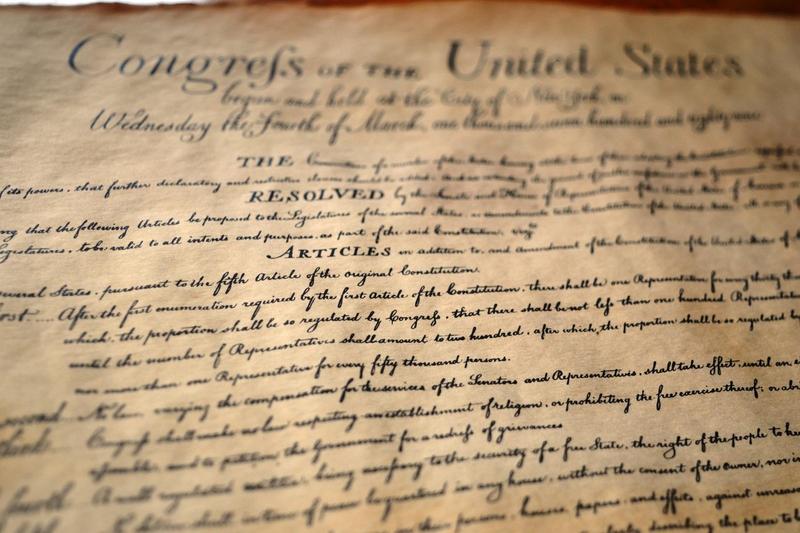 Congreſs OF THE United States
begun and held at the City of New York, on
Wednesday the Fourth of March, one thousand seven hundred and eighty nine
THE of the
its powers, that further declaratory and restrictive clauses should be added
RESOLVED by the Senate and House of Representatives of the United States of America
ng that the following Articles be proposed to the Legislatures of the several States, as amendments to the Constitution of the United States
egislatures, to be valid to all intents and purposes, as part of the said Constitution. vizt
ARTICLES in addition to, and Amendment of the Constitution of the United States of
everal States, pursuant to the fifth Article of the original Constitution.
After the first enumeration required by the first Article of the Constitution, there shall be one Representative for every thirty
which, the proportion shall be so regulated by Congreſs, that there shall be not leſs than one hundred Representat
until the number of Representatives shall amount to two hundred, after which, the proportion shall be so regulated by
nor more than one Representative for every fifty thousand persons.
No law, varying the compensation for the services of the Senators and Representatives, shall take effect, until an
Congreſs shall make no law respecting an establishment of religion, or prohibiting the free exercise thereof; or
and to petition the Government for a redreſs of grievances
A well regulated militia, being neceſsary to the security of a free State, the right of the people to
No Soldier shall, in time of peace be quartered in any house, without the consent of the owner, nor
persons, houses, papers, and effects, against
describing the place to